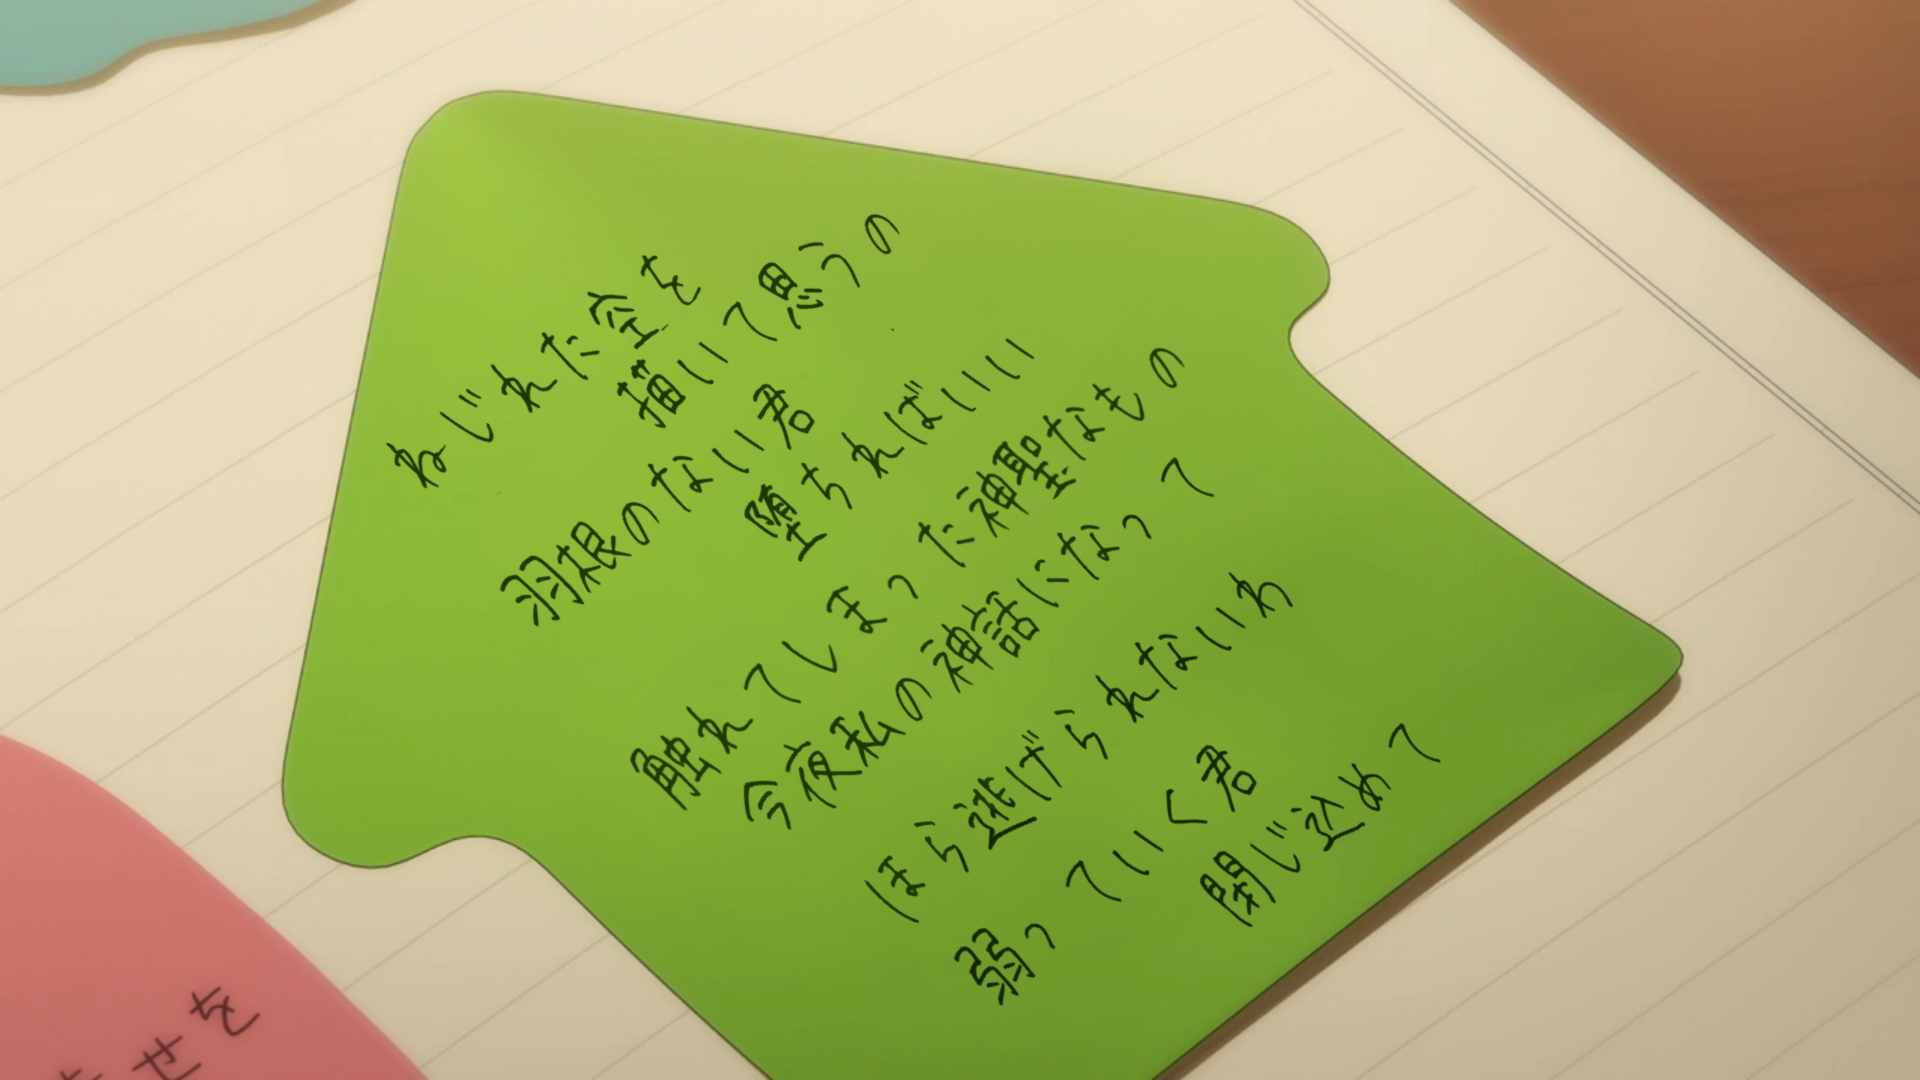 ねじれた空を
描いて思うの
羽根のない君
堕ちればいい
触れてしまった神聖なもの
今夜私の神話になって
ほら逃げられないわ
弱っていく君
閉じ込めて
せを